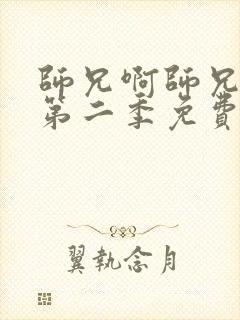 師兄啊師兄
第二季免費
翼執念月